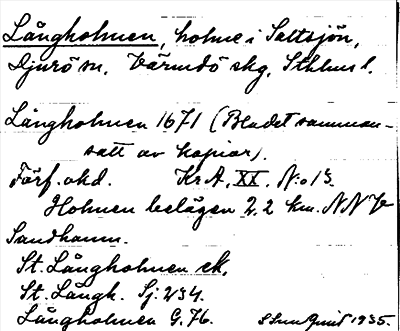 Långholmen, holme i Saltsjön,
Djurö sn, Värmdö skg, Sthlms l.
Långholmen 1671 (Bladet samman-
satt av kopior).
Förf. okd. Kr.A. XX. N:o 13.
Holmen belägen 2,2 km. NNV
Sandhamn.
St. Långholmen ek.
St. Långh. Sj. 234.
Långholmen G. 76. 1935.